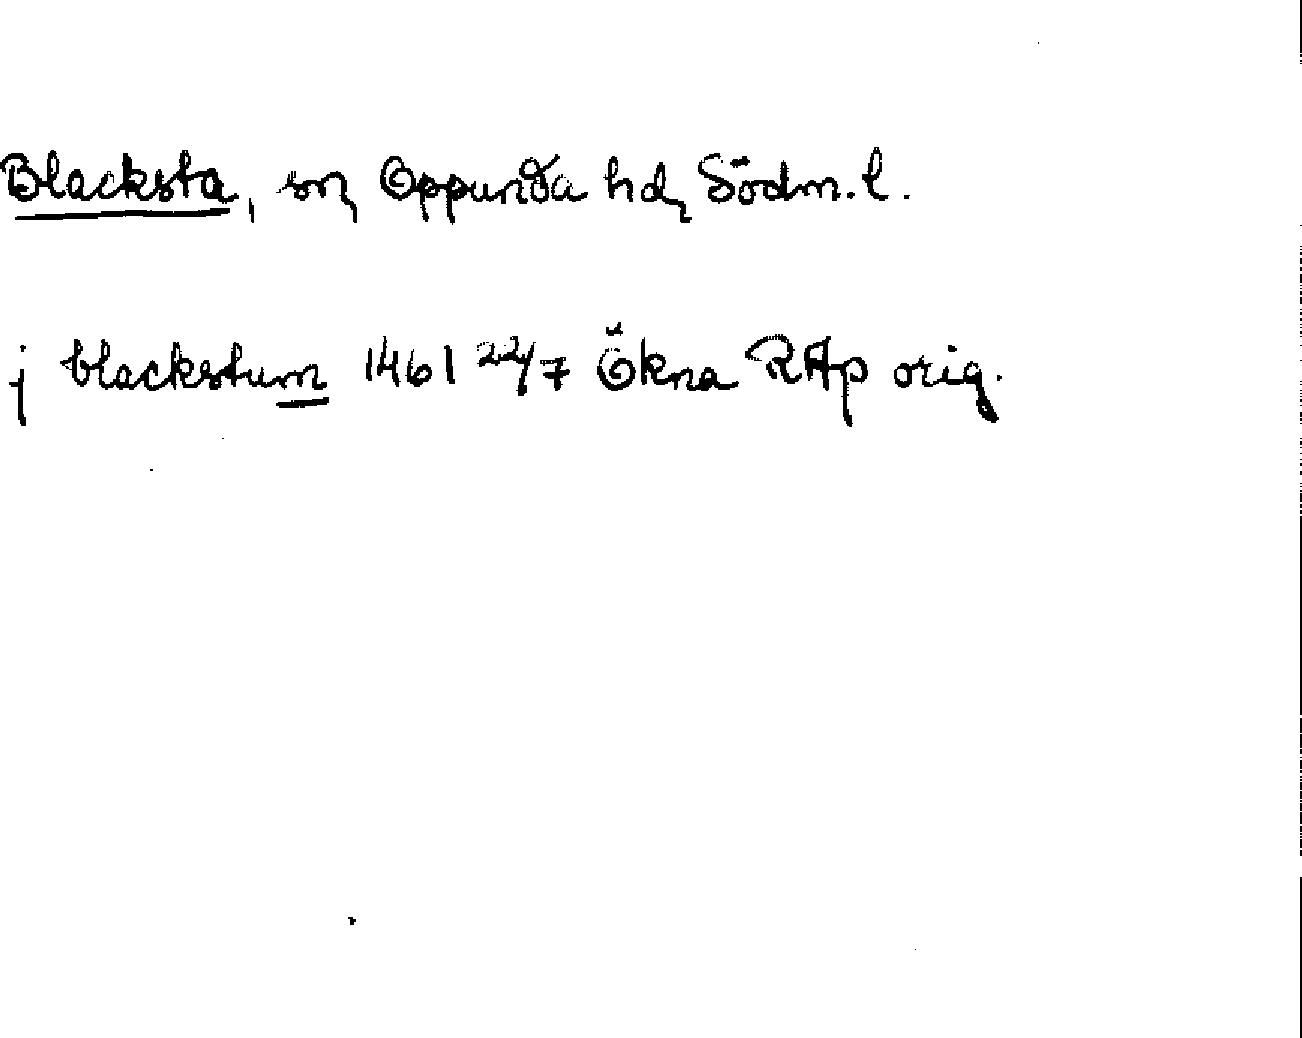 Blacksta, sn, Oppunda hd, Södm. l.
j blackstum 1461 22/7 Ökna RAp orig.